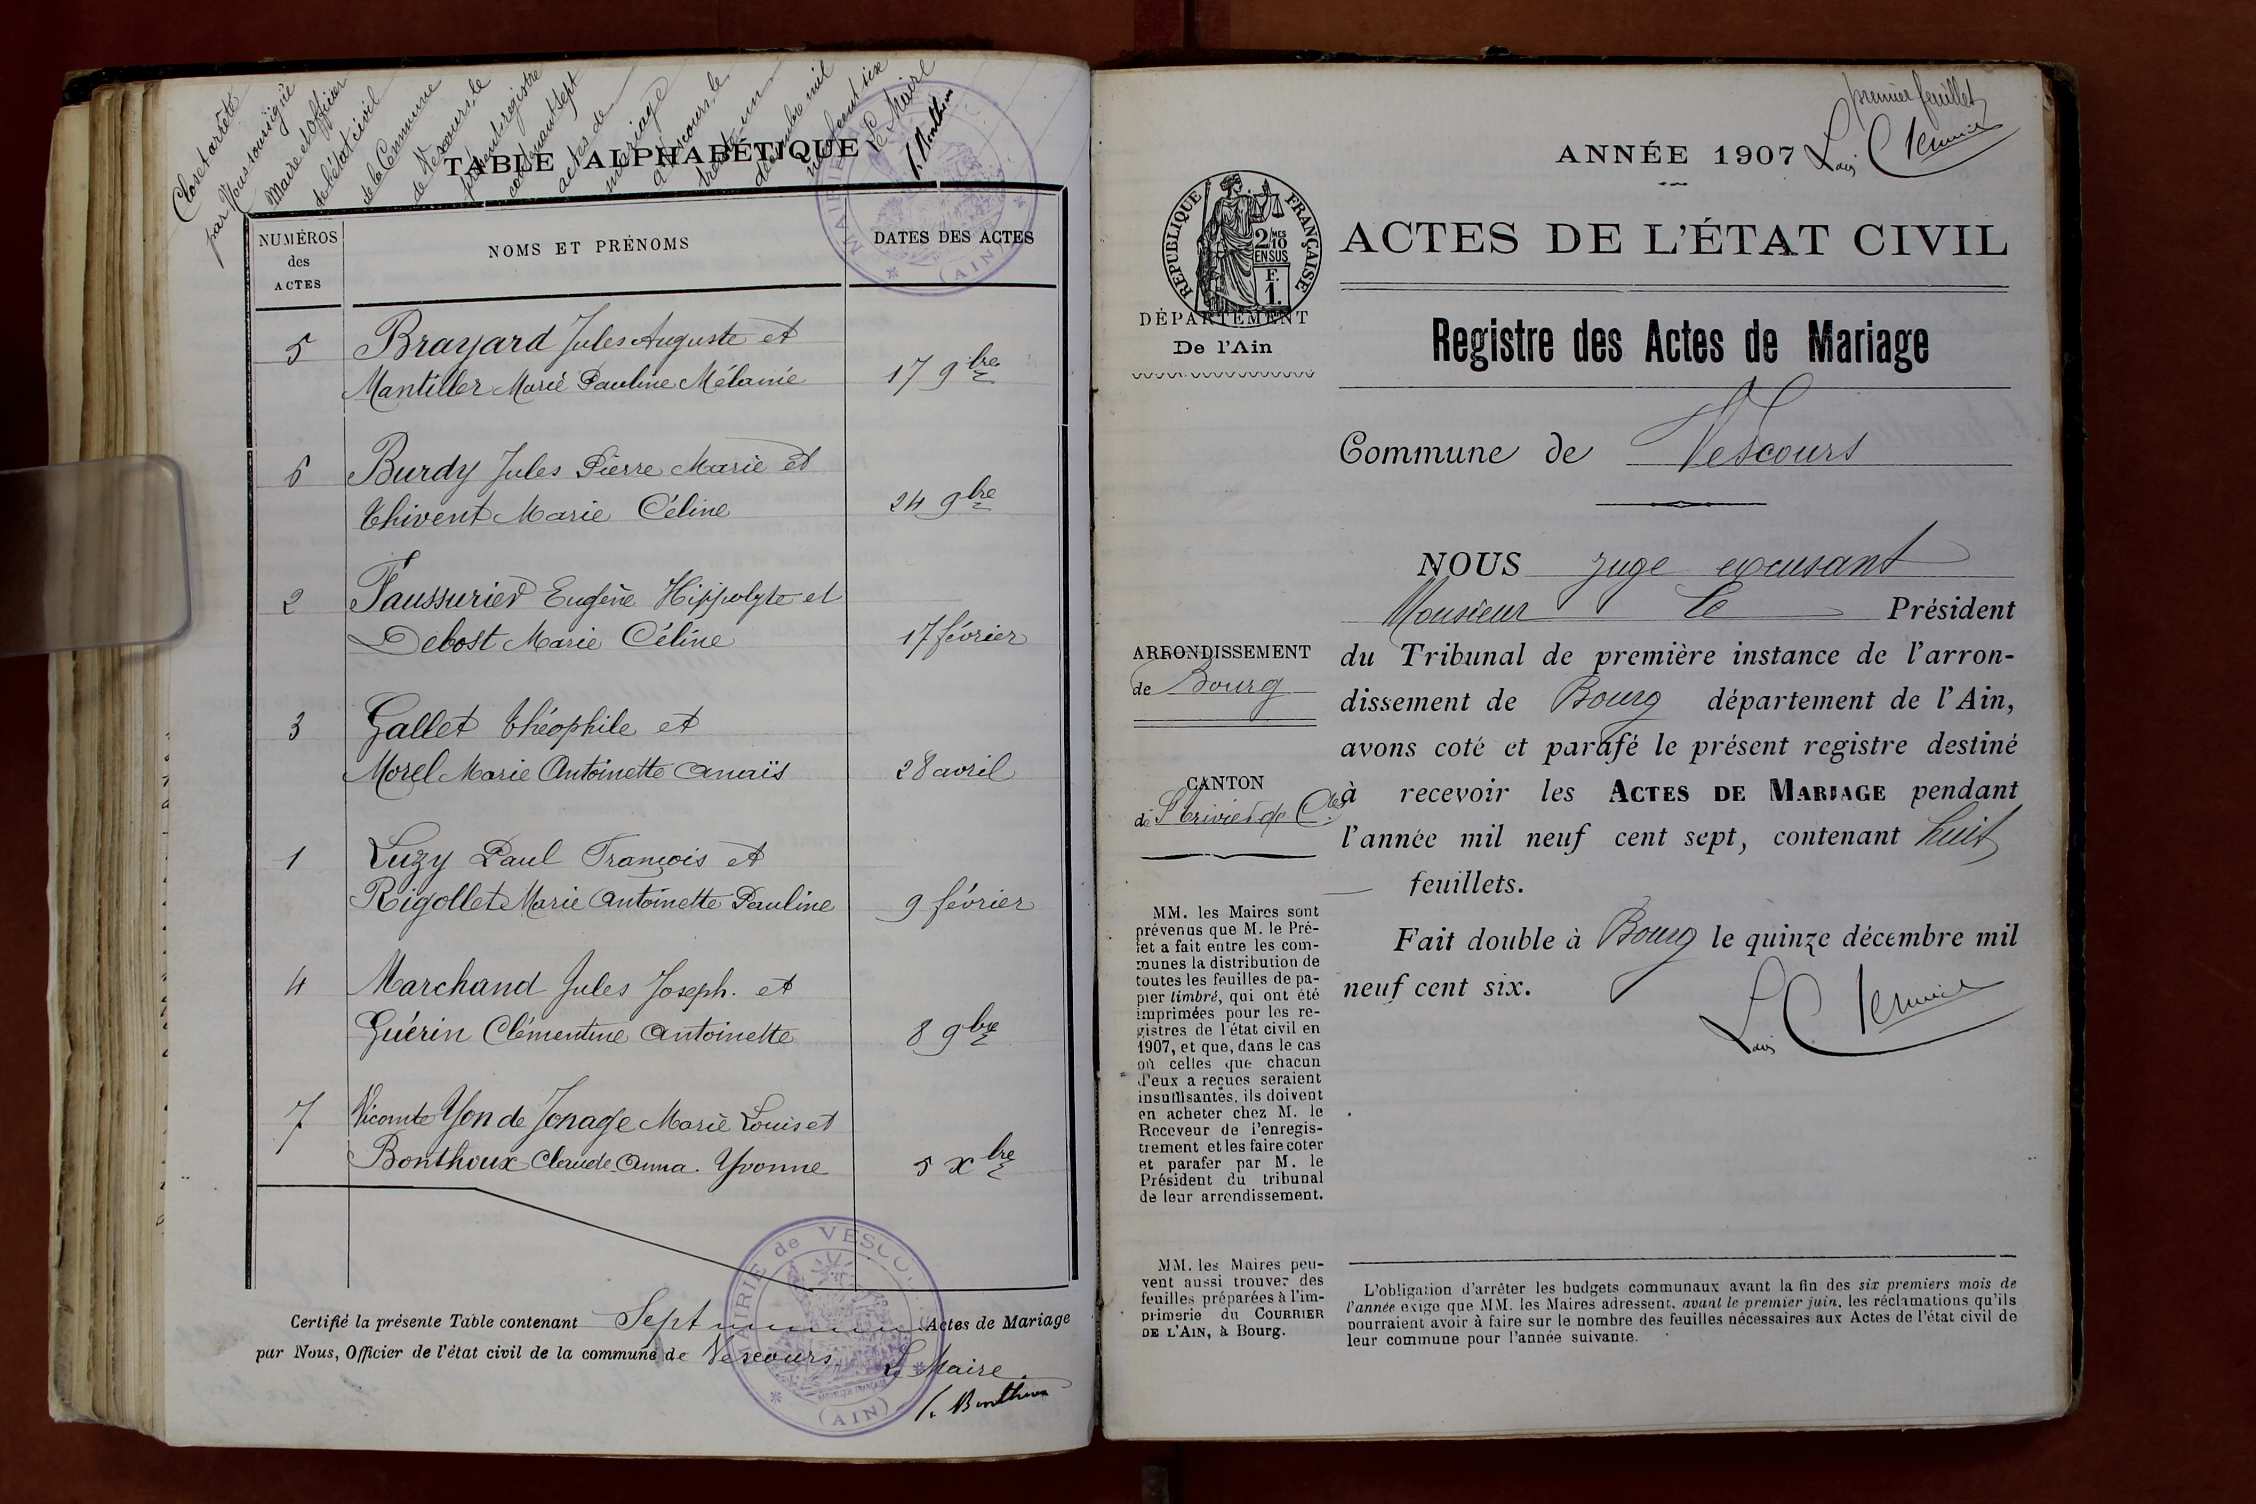 Clos et arrêté
par Nous soussigné
Maire et Officier
de l'état civil
de la Commune
de Vescours, le
présent registre
contenant sept
actes de
mariage
à Vescours, le
trente un
décembre mil
neuf cent six
Le Maire
TABLE ALPHABÉTIQUE
NUMÉROS
des
ACTES
NOMS ET PRÉNOMS
DATES DES ACTES
5 Brayard Jules Auguste et
Mantiller Marie Pauline Mélanie 17 9bre
6 Burdy Jules Pierre Marie et
Thivent Marie Céline 24 9bre
2 Faussurier Eugène Hippolyte et
Debost Marie Céline 17 février
3 Gallet Théophile et
Morel Marie Antoinette Anaïs 28 avril
1 Luzy Paul François et
Rigollet Marie Antoinette Pauline 9 février
4 Marchand Jules Joseph. et
Guérin Clémentine Antoinette 8 9bre
7 Vicomte Yon de Jonage Marie Louis et
Bonthoux Claude Anna. Yvonne 5 Xbre
Certifié la présente Table contenant Sept Actes de Mariage
par Nous, Officier de l'état civil de la commune de Vescours
Le Maire.
MAIRIE de VESCO
(AIN)
premier feuillet
ANNÉE 1907
RÉPUBLIQUE FRANÇAISE
2/10MES
EN SUS
F.
1.
ACTES DE L'ÉTAT CIVIL
DÉPARTEMENT
De l'Ain
Registre des Actes de Mariage
Commune de Vescours
NOUS Juge excusant
Monsieur le Président
du Tribunal de première instance de l'arron-
dissement de Bourg département de l'Ain,
avons coté et parafé le présent registre destiné
à recevoir les ACTES DE MARIAGE pendant
l'année mil neuf cent sept, contenant huit
feuillets.
Fait double à Bourg le quinze décembre mil
neuf cent six.
ARRONDISSEMENT
de Bourg
CANTON
de St Trivier de Ctes
MM. les Maires sont
prévenus que M. le Pré-
fet a fait entre les com-
munes la distribution de
toutes les feuilles de pa-
pier timbré, qui ont été
imprimées pour les re-
gistres de l'état civil en
1907, et que, dans le cas
où celles que chacun
d'eux a reçues seraient
insuffisantes, ils doivent
en acheter chez M. le
Receveur de l'enregis-
trement et les faire coter
et parafer par M. le
Président du tribunal
de leur arrondissement.
MM. les Maires peu-
vent aussi trouver des
feuilles préparées à l'im-
primerie du COURRIER
DE L'AIN, à Bourg.
L'obligation d'arrêter les budgets communaux avant la fin des six premiers mois de
l'année exige que MM. les Maires adressent, avant le premier juin, les réclamations qu'ils
pourraient avoir à faire sur le nombre des feuilles nécessaires aux Actes de l'état civil de
leur commune pour l'année suivante.